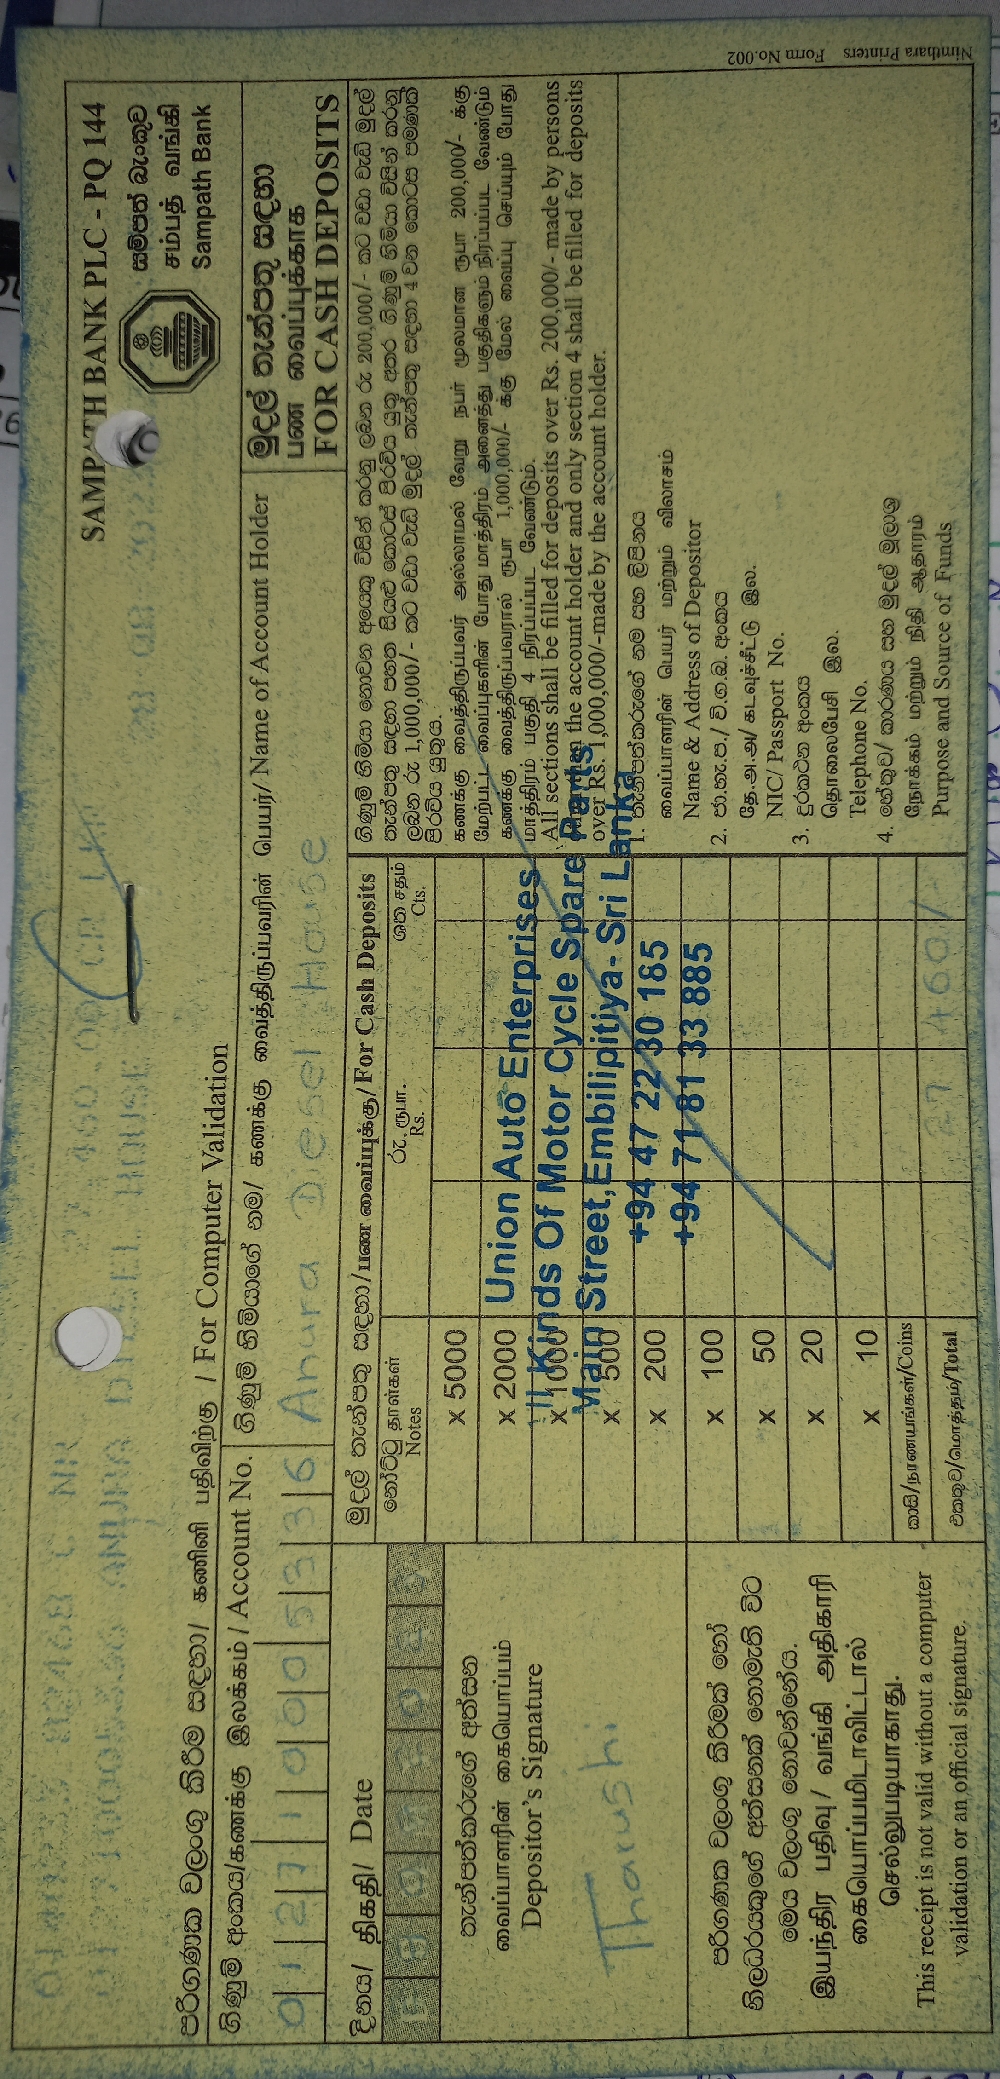 SAMPATH BANK PLC - PQ 144
සම්පත් බැංකුව
சம்பத் வங்கி
Sampath Bank
ANURA DIESEL HOUSE
පරිගණක වලංගු කිරීම සඳහා / கணினி பதிவிற்கு / For Computer Validation
ගිණුම් අංකය/கணக்கு இலக்கம் / Account No.
0127 1000 5336
ගිණුම් හිමියාගේ නම/ கணக்கு வைத்திருப்பவரின் பெயர்/ Name of Account Holder
Anura Diesel House
මුදල් තැන්පතු සඳහා
பண வைப்புக்காக
FOR CASH DEPOSITS
දිනය/ திகதி/ Date
තැන්පත්කරුගේ අත්සන
வைப்பாளரின் கையொப்பம்
Depositor's Signature
Tharushi
පරිගණක වලංගු කිරීමක් හෝ
නිලධරයකුගේ අත්සනක් නොමැති විට
මෙය වලංගු නොවන්නේය.
இயந்திர பதிவு / வங்கி அதிகாரி
கையொப்பமிடாவிட்டால்
செல்லுபடியாகாது.
This receipt is not valid without a computer
validation or an official signature.
මුදල් තැන්පතු සඳහා/பண வைப்புக்கு/For Cash Deposits
නෝට්ටු தாள்கள்
Notes
රු. ரூபா.
Rs.
ශත சதம்
Cts.
x 5000
x 2000
x 1000
x 500
x 200
x 100
x 50
x 20
x 10
කාසි/நாணயங்கள்/Coins
එකතුව/மொத்தம்/Total
27 460/
Union Auto Enterprises
ll Kinds Of Motor Cycle Spare Parts
Main Street,Embilipitiya- Sri Lanka
+94 47 22 30 165
+94 71 81 33 885
ගිණුම් හිමියා නොවන අයෙකු විසින් කරනු ලබන රු 200,000/- කට වඩා වැඩි මුදල්
තැන්පතු සඳහා පහත සියළු කොටස් පිරවිය යුතු අතර ගිණුම් හිමියා විසින් කරනු
ලබන රු 1,000,000/- කට වඩා වැඩි මුදල් තැන්පතු සඳහා 4 වන කොටස පමණක්
පිරවිය යුතුය.
கணக்கு வைத்திருப்பவர் அல்லாமல் வேறு நபர் மூலமான ரூபா 200,000/- க்கு
மேற்பட்ட வைப்புகளின் போது மாத்திரம் அனைத்து பகுதிகளும் நிரப்பப்பட வேண்டும்
கணக்கு வைத்திருப்பவரால் ரூபா 1,000,000/- க்கு மேல் வைப்பு செய்யும் போது
மாத்திரம் பகுதி 4 நிரப்பப்பட வேண்டும்.
All sections shall be filled for deposits over Rs. 200,000/- made by persons
the account holder and only section 4 shall be filled for deposits
over Rs. 1,000,000/-made by the account holder.
1. තැන්පත්කරුගේ නම සහ ලිපිනය
வைப்பாளரின் பெயர் மற்றும் விலாசம்
Name & Address of Depositor
2. ජා.හැ.ප./ වි.ග.බ. අංකය
தே.அ.அ/ கடவுச்சீட்டு இல.
NIC/ Passport No.
3. දුරකථන අංකය
தொலைபேசி இல.
Telephone No.
4. හේතුව/ කාරණය සහ මුදල් මූලාශ්‍ර
நோக்கம் மற்றும் நிதி ஆதாரம்
Purpose and Source of Funds
Nimthara Printers Form No.002